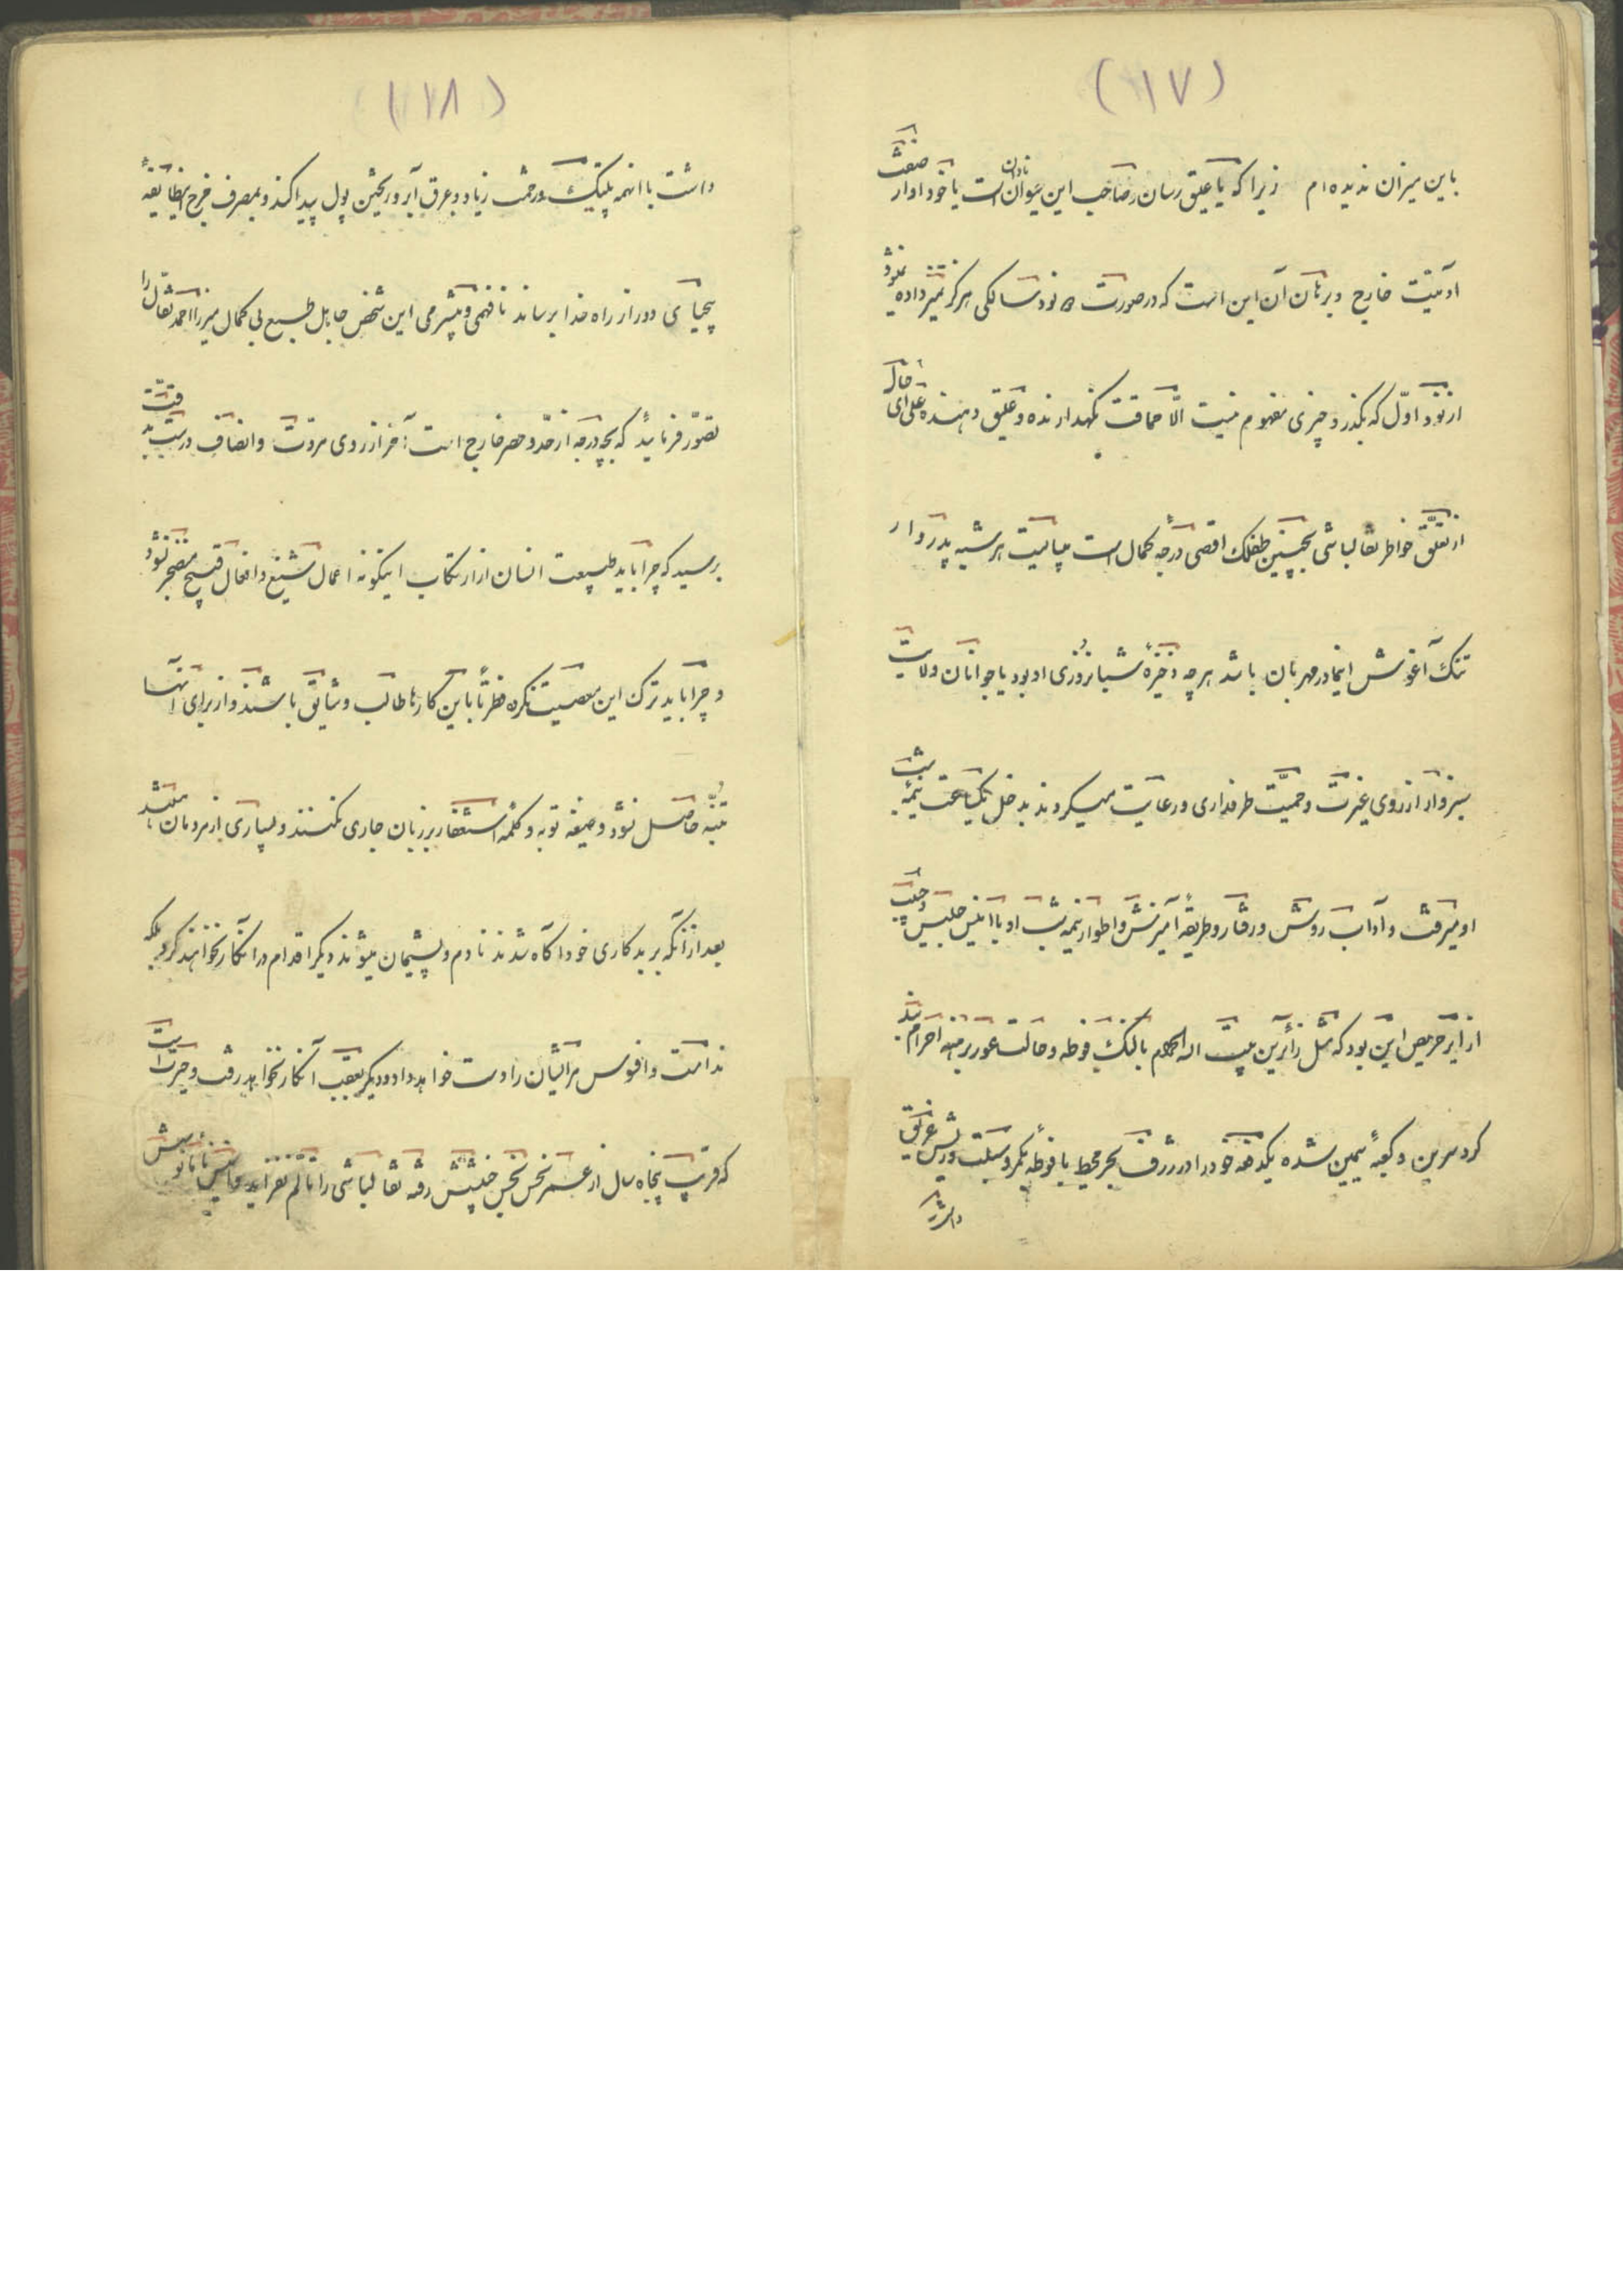 (۱۷)
باین میزان ندیده‌ام زیرا که یا علیق رسان و صاحب این حیوان نادان است یا خود او از صفت
آدمیت خارج و برهان آن این است که در صورت نود سالگی هرگز تمیز داده نمیشود
از نود اوّل که بگذرد چیزی مفهوم نیست الّا حماقت نگهدارنده و علیق دهنده علی ای حال
از تعلّق خواطر نقالباشی بچنین طفلک اقصی درجهٔ کمال است میبایست هر شبه پدروار
تنک آغوش اینمادر مهربان باشد هر چه ذخیرهٔ شبانروزی او بود یا جوانان ولایت
سبزوار از روی غیرت و حمیّت طرفداری و رعایت میکردند بدخل یکساعت نیمه شب
او میرفت و آداب روش و رفتار و طریقهٔ آمیزش و اطوار نیمه شب او با انیس جلیس
از ایر حریص این بود که مثل زائرین بیت الله الحرام با لنگ فوطه و حالت عور برهنه احرام بند
گرد سرین و کعبهٔ سیمین شده یکدفعه خود را در ژرف بحر محیط با فوطه کمر و سبلت و ریش غریق
داشت
(۱۸)
داشت با اینهمه پلتیک و زحمت زیاد و عرق آبرو ریختن پول پیدا کند و بمصرف خرج اینطایفهٔ
بیحیای دور از راه خدا برساند نافهمی و بیشرمی این شخص جاهل طبع بی کمال میرزا احمد نقال را
تصوّر فرمائید که بچه درجه از حدّ و حصر خارج است آخر از روی مروّت و انصاف درست بدقّت
برسید که چرا باید طبیعت انسان از ارتکاب اینگونه اعمال شنیع و افعال قبیح منضجر نشود
و چرا باید ترک این معصیت نکرده فطرتاً باین کارها طالب و شایق باشند و از برای آنها
تنبّه حاصل نشود و صیغه توبه و کلمهٔ استغفار بر زبان جاری نکنند و بسیاری از مردمان
بعد از آنکه بر بدکاری خود آگاه شدند نادم و پشیمان میشوند دیگر اقدام در آنکار نخواهند کرد بلکه
ندامت و افسوس مر ایشان را دست خواهد داد و دیگر بعقب آنکار نخواهد رفت و حیرت است
که قرب پنجاه سال از عمر نحس نجس خبیثش رفته نقالباشی را